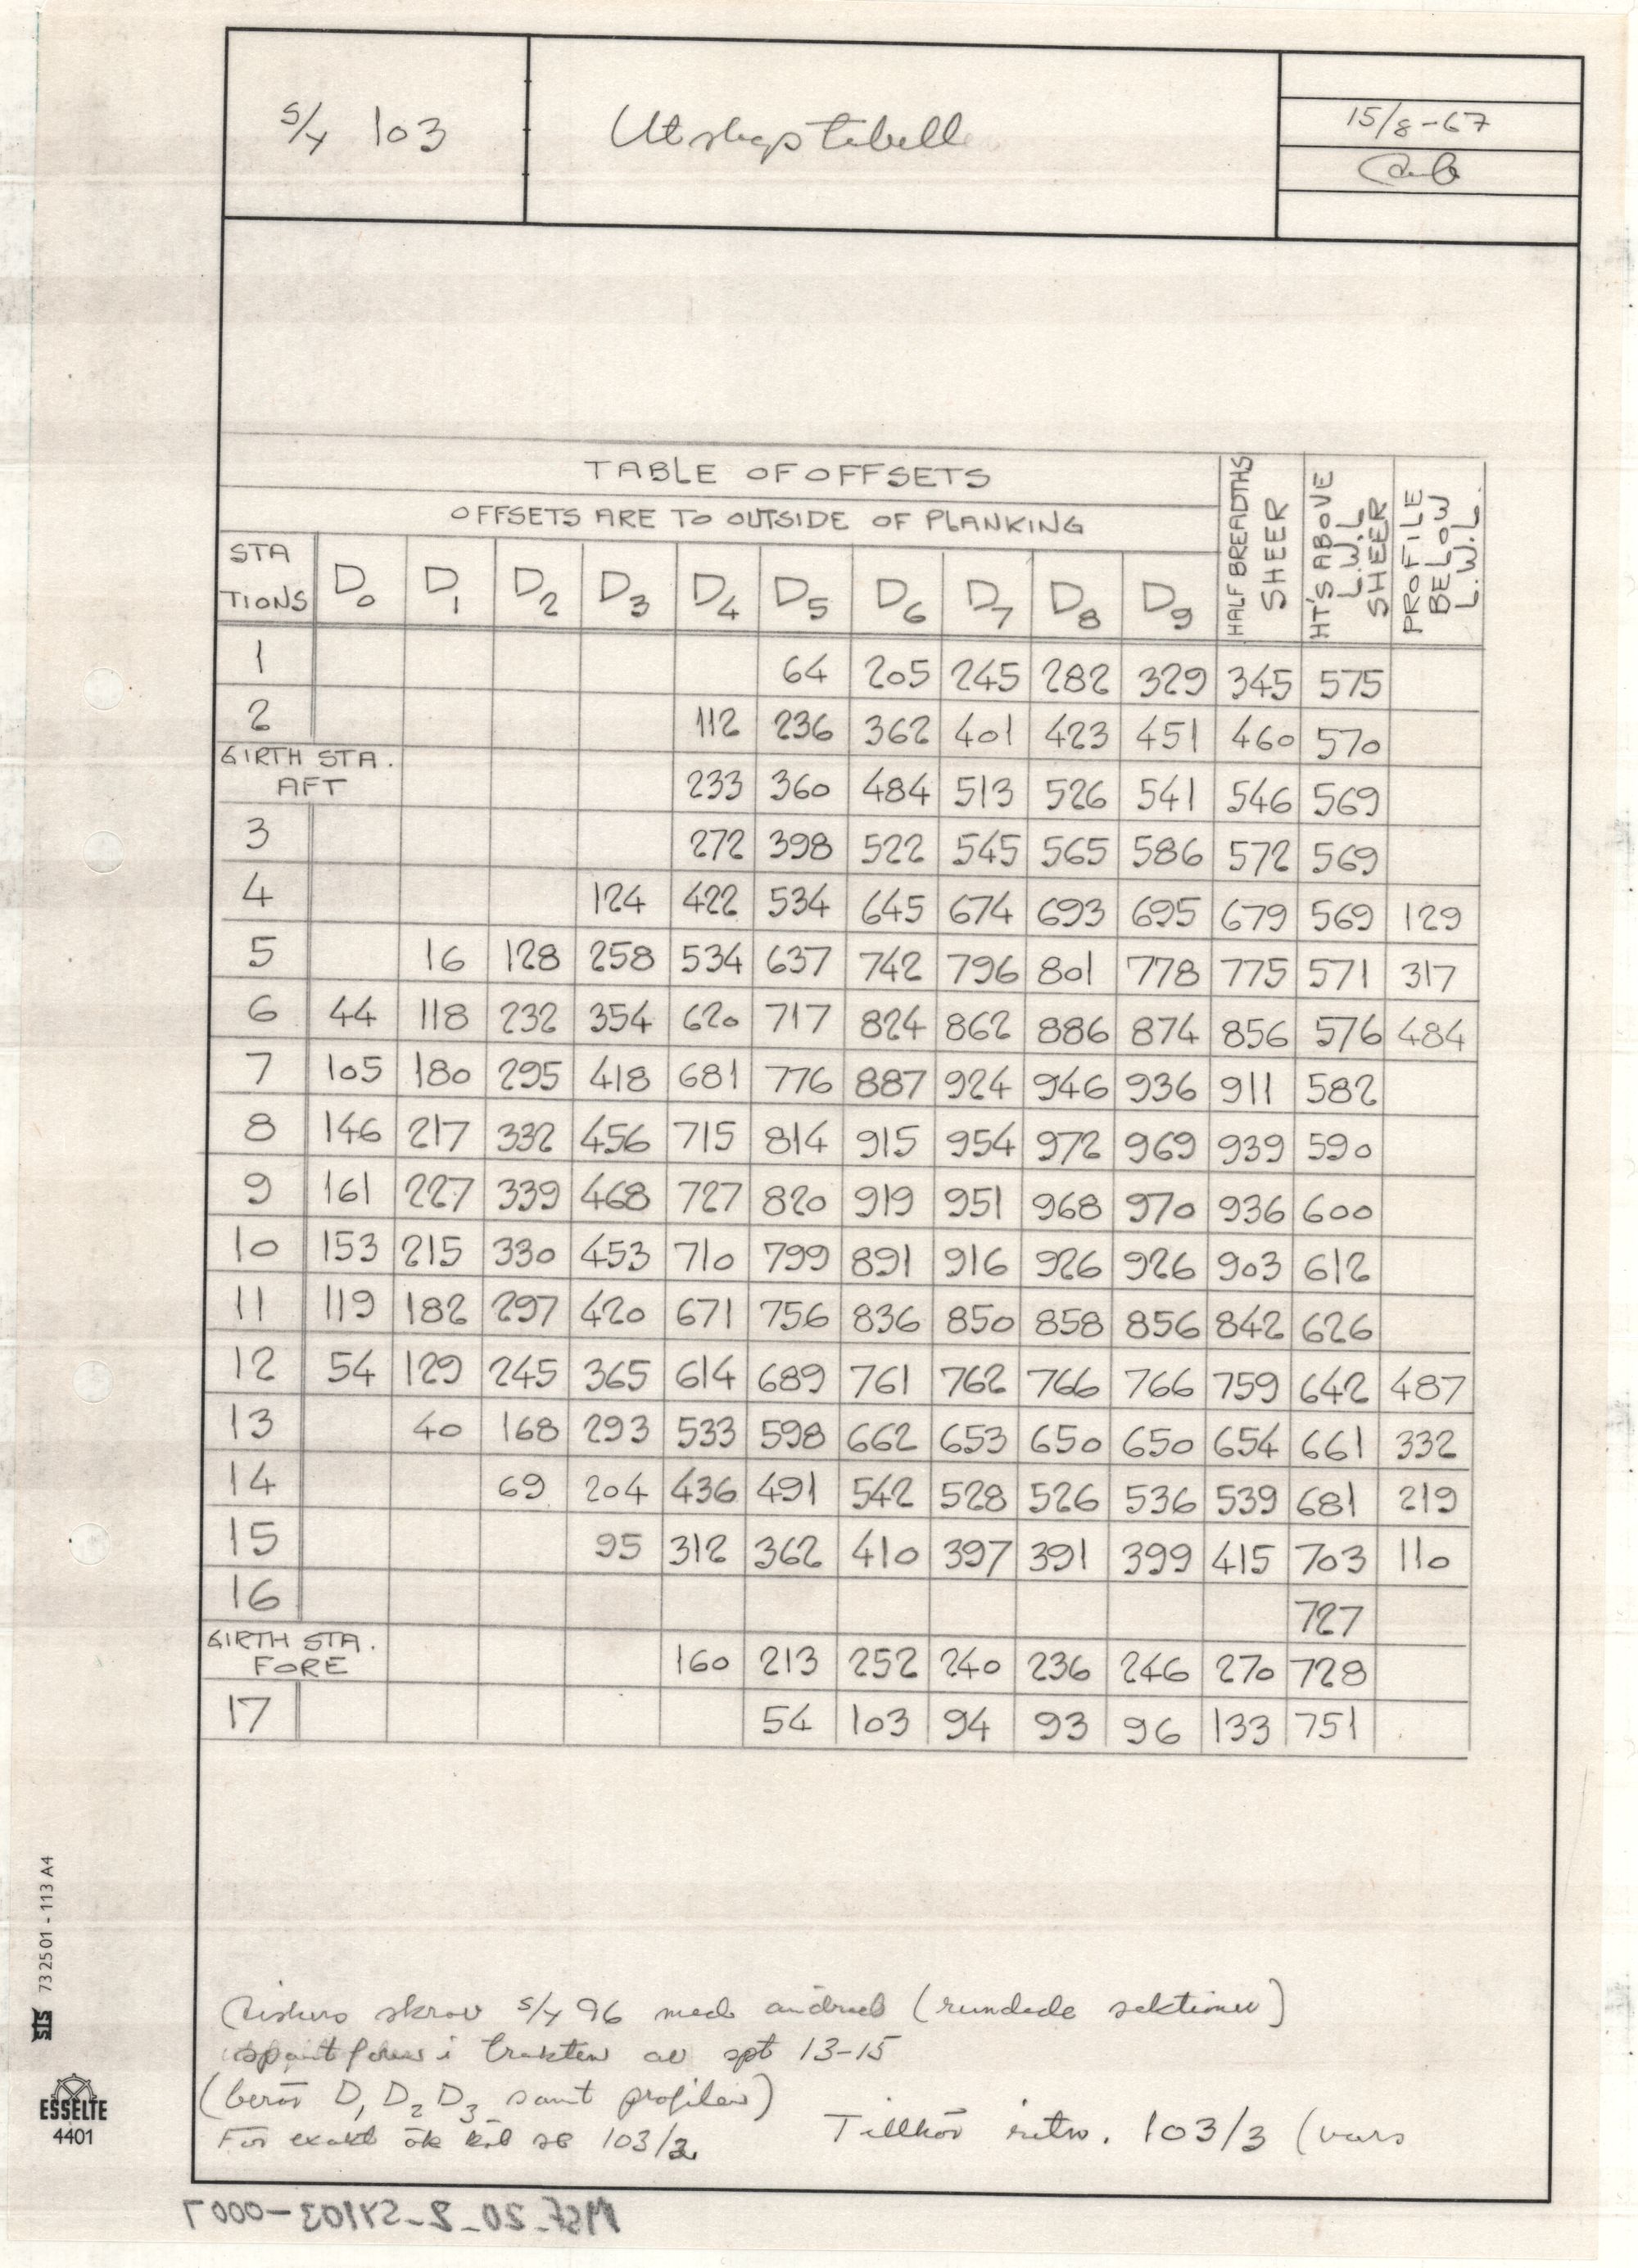 S/Y 103
Utslagstabell
15/8-67
TABLE OF OFFSETS
OFFSETS ARE TO OUTSIDE OF PLANKING
STATIONS D0 D1 D2 D3 D4 D5 D6 D7 D8 D9 HALF BREADTHS SHEER HT'S ABOVE L.W.L SHEER PROFILE BELOW L.W.L.
1 64 205 245 282 329 345 575
2 112 236 362 401 423 451 460 570
GIRTH STA. AFT 233 360 484 513 526 541 546 569
3 272 398 522 545 565 586 572 569
4 124 422 534 645 674 693 695 679 569 129
5 16 128 258 534 637 742 796 801 778 775 571 317
6 44 118 232 354 620 717 824 862 886 874 856 576 484
7 105 180 295 418 681 776 887 924 946 936 911 582
8 146 217 332 456 715 814 915 954 972 969 939 590
9 161 227 339 468 727 820 919 951 968 970 936 600
10 153 215 330 453 710 799 891 916 926 926 903 612
11 119 182 297 420 671 756 836 850 858 856 842 626
12 54 129 245 365 614 689 761 762 766 766 759 642 487
13 40 168 293 533 598 662 653 650 650 654 661 332
14 69 204 436 491 542 528 526 536 539 681 219
15 95 312 362 410 397 391 399 415 703 110
16 727
GIRTH STA. FORE 160 213 252 240 236 246 270 728
17 54 103 94 93 96 133 751
skrov S/Y 96 med ändrad (rundade sektioner)
i trakten av spt 13-15
(berör D1 D2 D3 samt profilen)
För exakt ök köl se 103/2
Tillhör ritn. 103/3 (vars
SIS 73 25 01 - 113 A4
ESSELTE
4401
MSF_20_2_SY103-0007